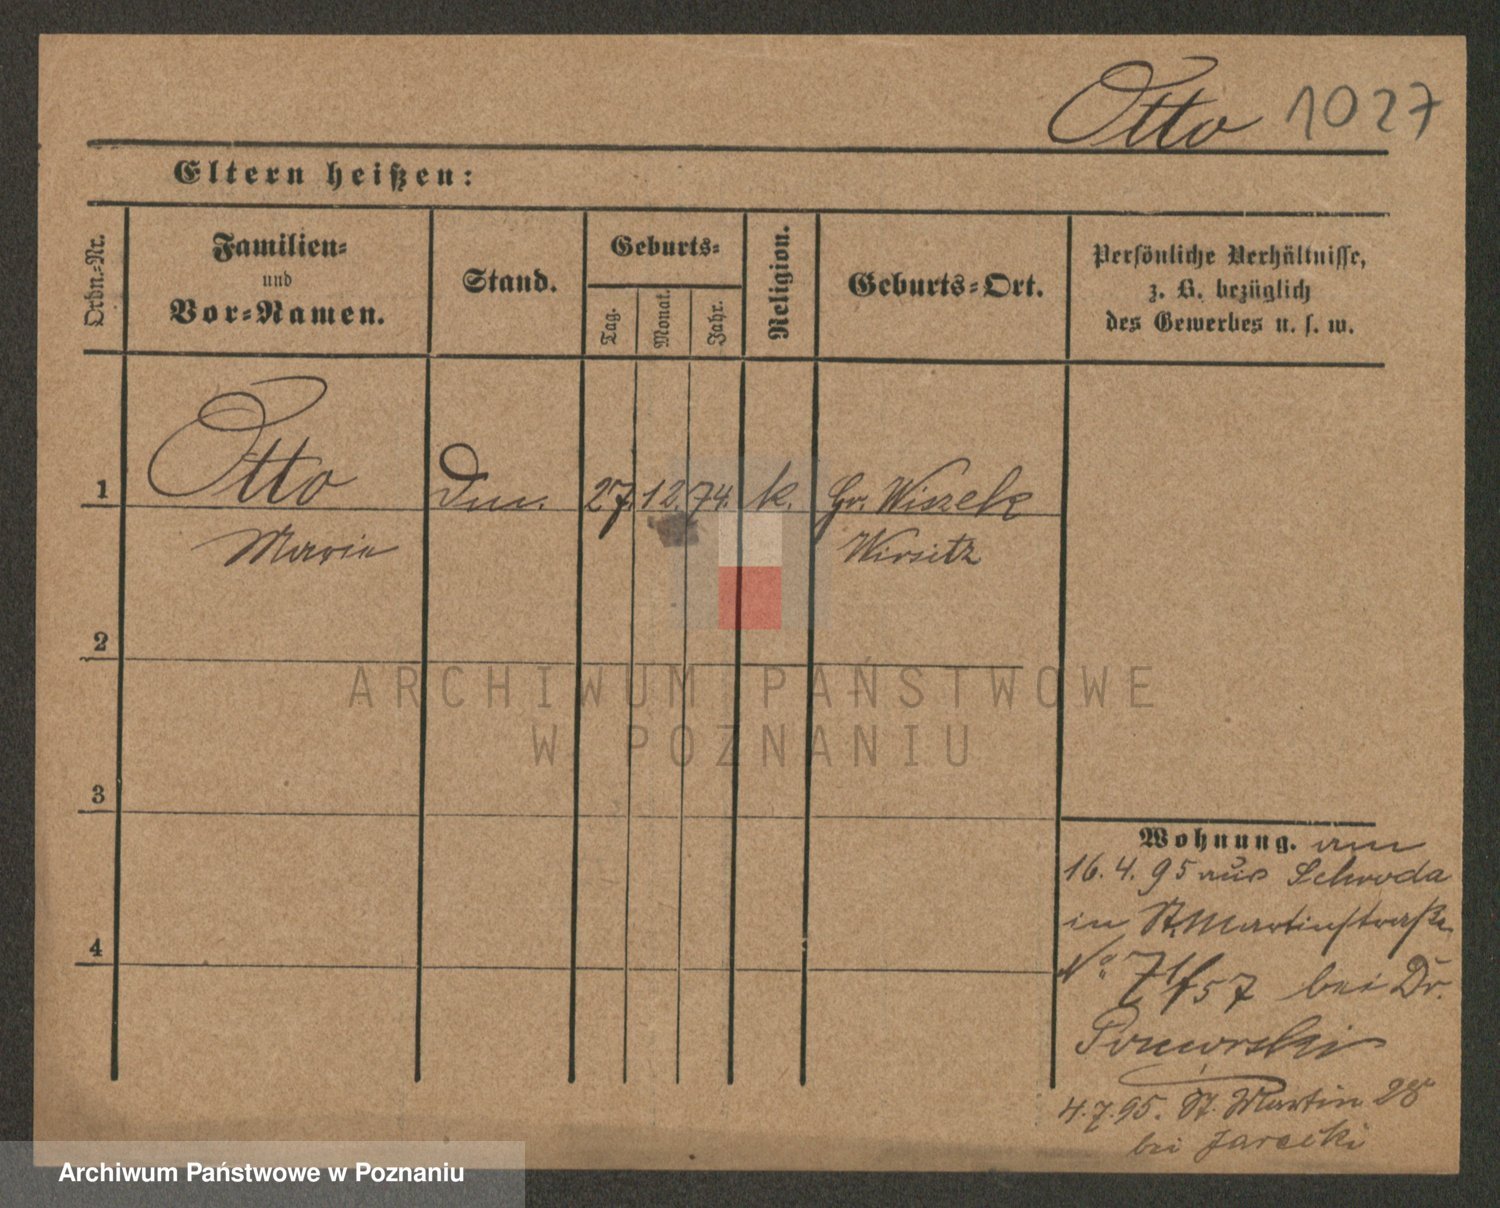 Otto 1027
Eltern heißen:
Ordn.-Nr.
Familien-
und
Vor-Namen.
Stand.
Geburts-
Tag.
Monat.
Jahr.
Religion.
Geburts-Ort.
Persönliche Verhältnisse,
z. B. bezüglich
des Gewerbes u. s. w.
1 Otto 27. 12. 74. k. Gr. Wiszek
Marie Wirsitz
2
3
4
Wohnung. am
16. 4. 95 aus Schroda
in St. Martinstraße
No 71/57 bei Dr.
4.7.95. St. Martin 28
bei Jarecki
ARCHIWUM PAŃSTWOWE
W POZNANIU
Archiwum Państwowe w Poznaniu